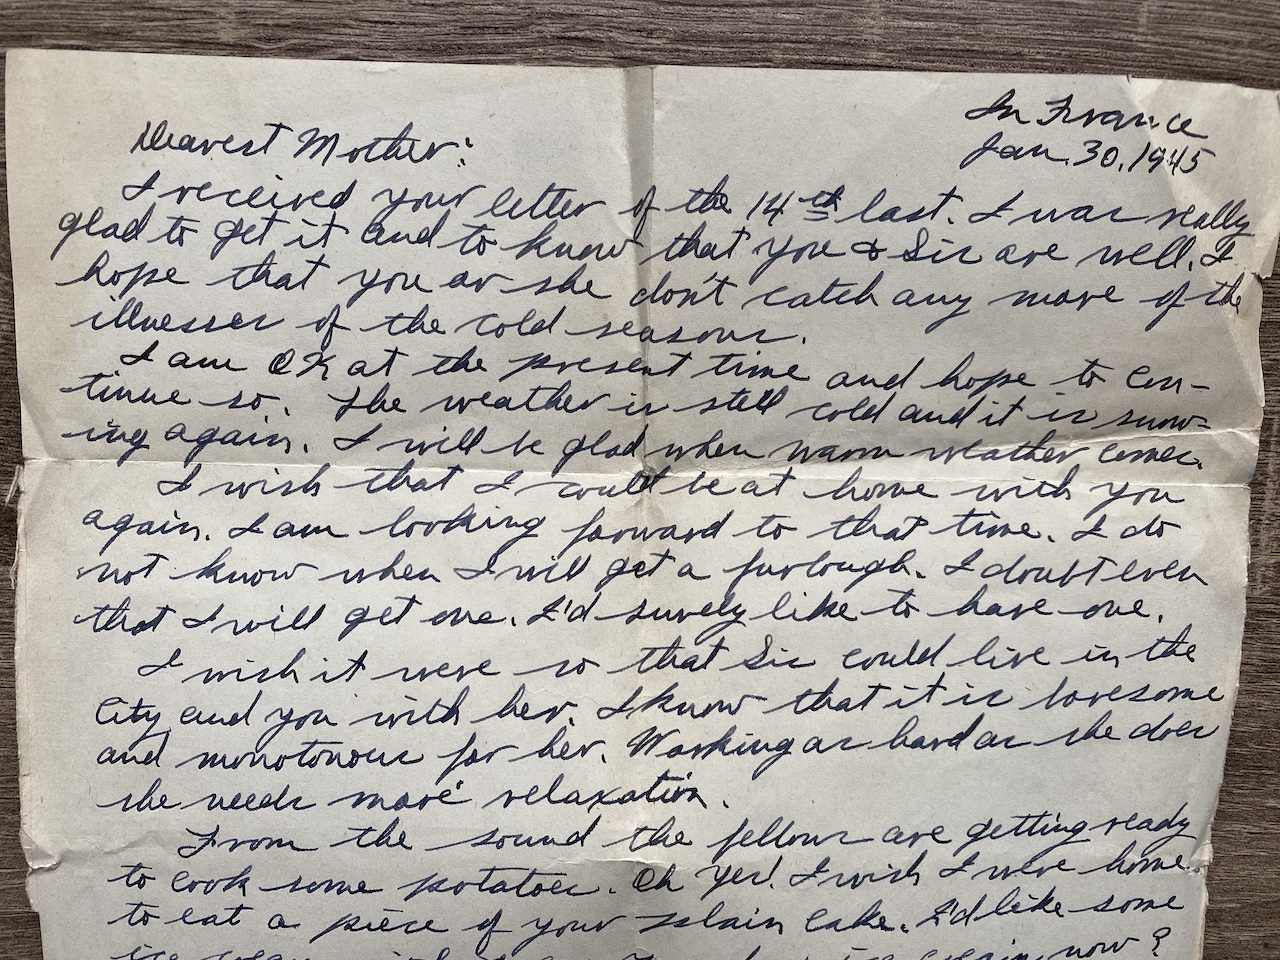 In France
Jan. 30, 1945
Dearest Mother:
I received your letter of the 14th last. I was really
glad to get it and to know that you & Sis are well. I
hope that you or she don't catch any more of the
illnesses of the cold seasons.
I am OK at the present time and hope to con-
tinue so. The weather is still cold and it is snow-
ing again. I will be glad when warm weather comes.
I wish that I could be at home with you
again. I am looking forward to that time. I do
not know when I will get a furlough. I doubt even
that I will get one. I'd surely like to have one.
I wish it were so that Sis could live in the
City and you with her. I know that it is lonesome
and monotonous for her. Working as hard as she does
she needs more relaxation.
From the sound the fellows are getting ready
to cook some potatoes. Oh Yes! I wish I were home
to eat a piece of your plain cake. I'd like some
now?